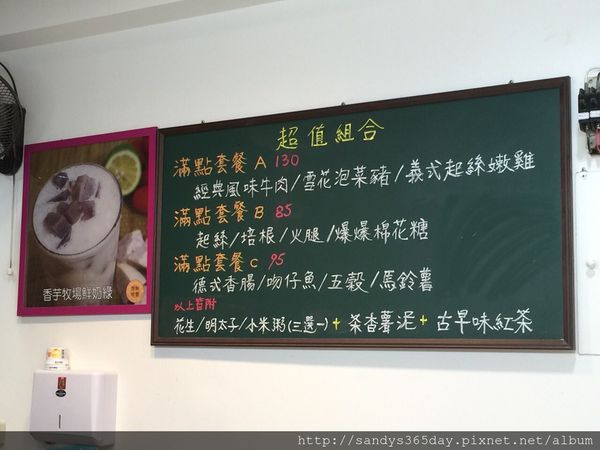 超值組合
滿點套餐 A 130
經典風味牛肉/雪花泡菜豬/義式起絲嫩雞
滿點套餐 B 85
起絲/培根/火腿/爆爆棉花糖
滿點套餐 C 95
德式香腸/吻仔魚/五穀/馬鈴薯
以上皆附
花生/明太子/小米粥(三選一)+茶杏薯泥+古早味紅茶
香芋牧場鮮奶綠
http://sandys365day.pixnet.net/album